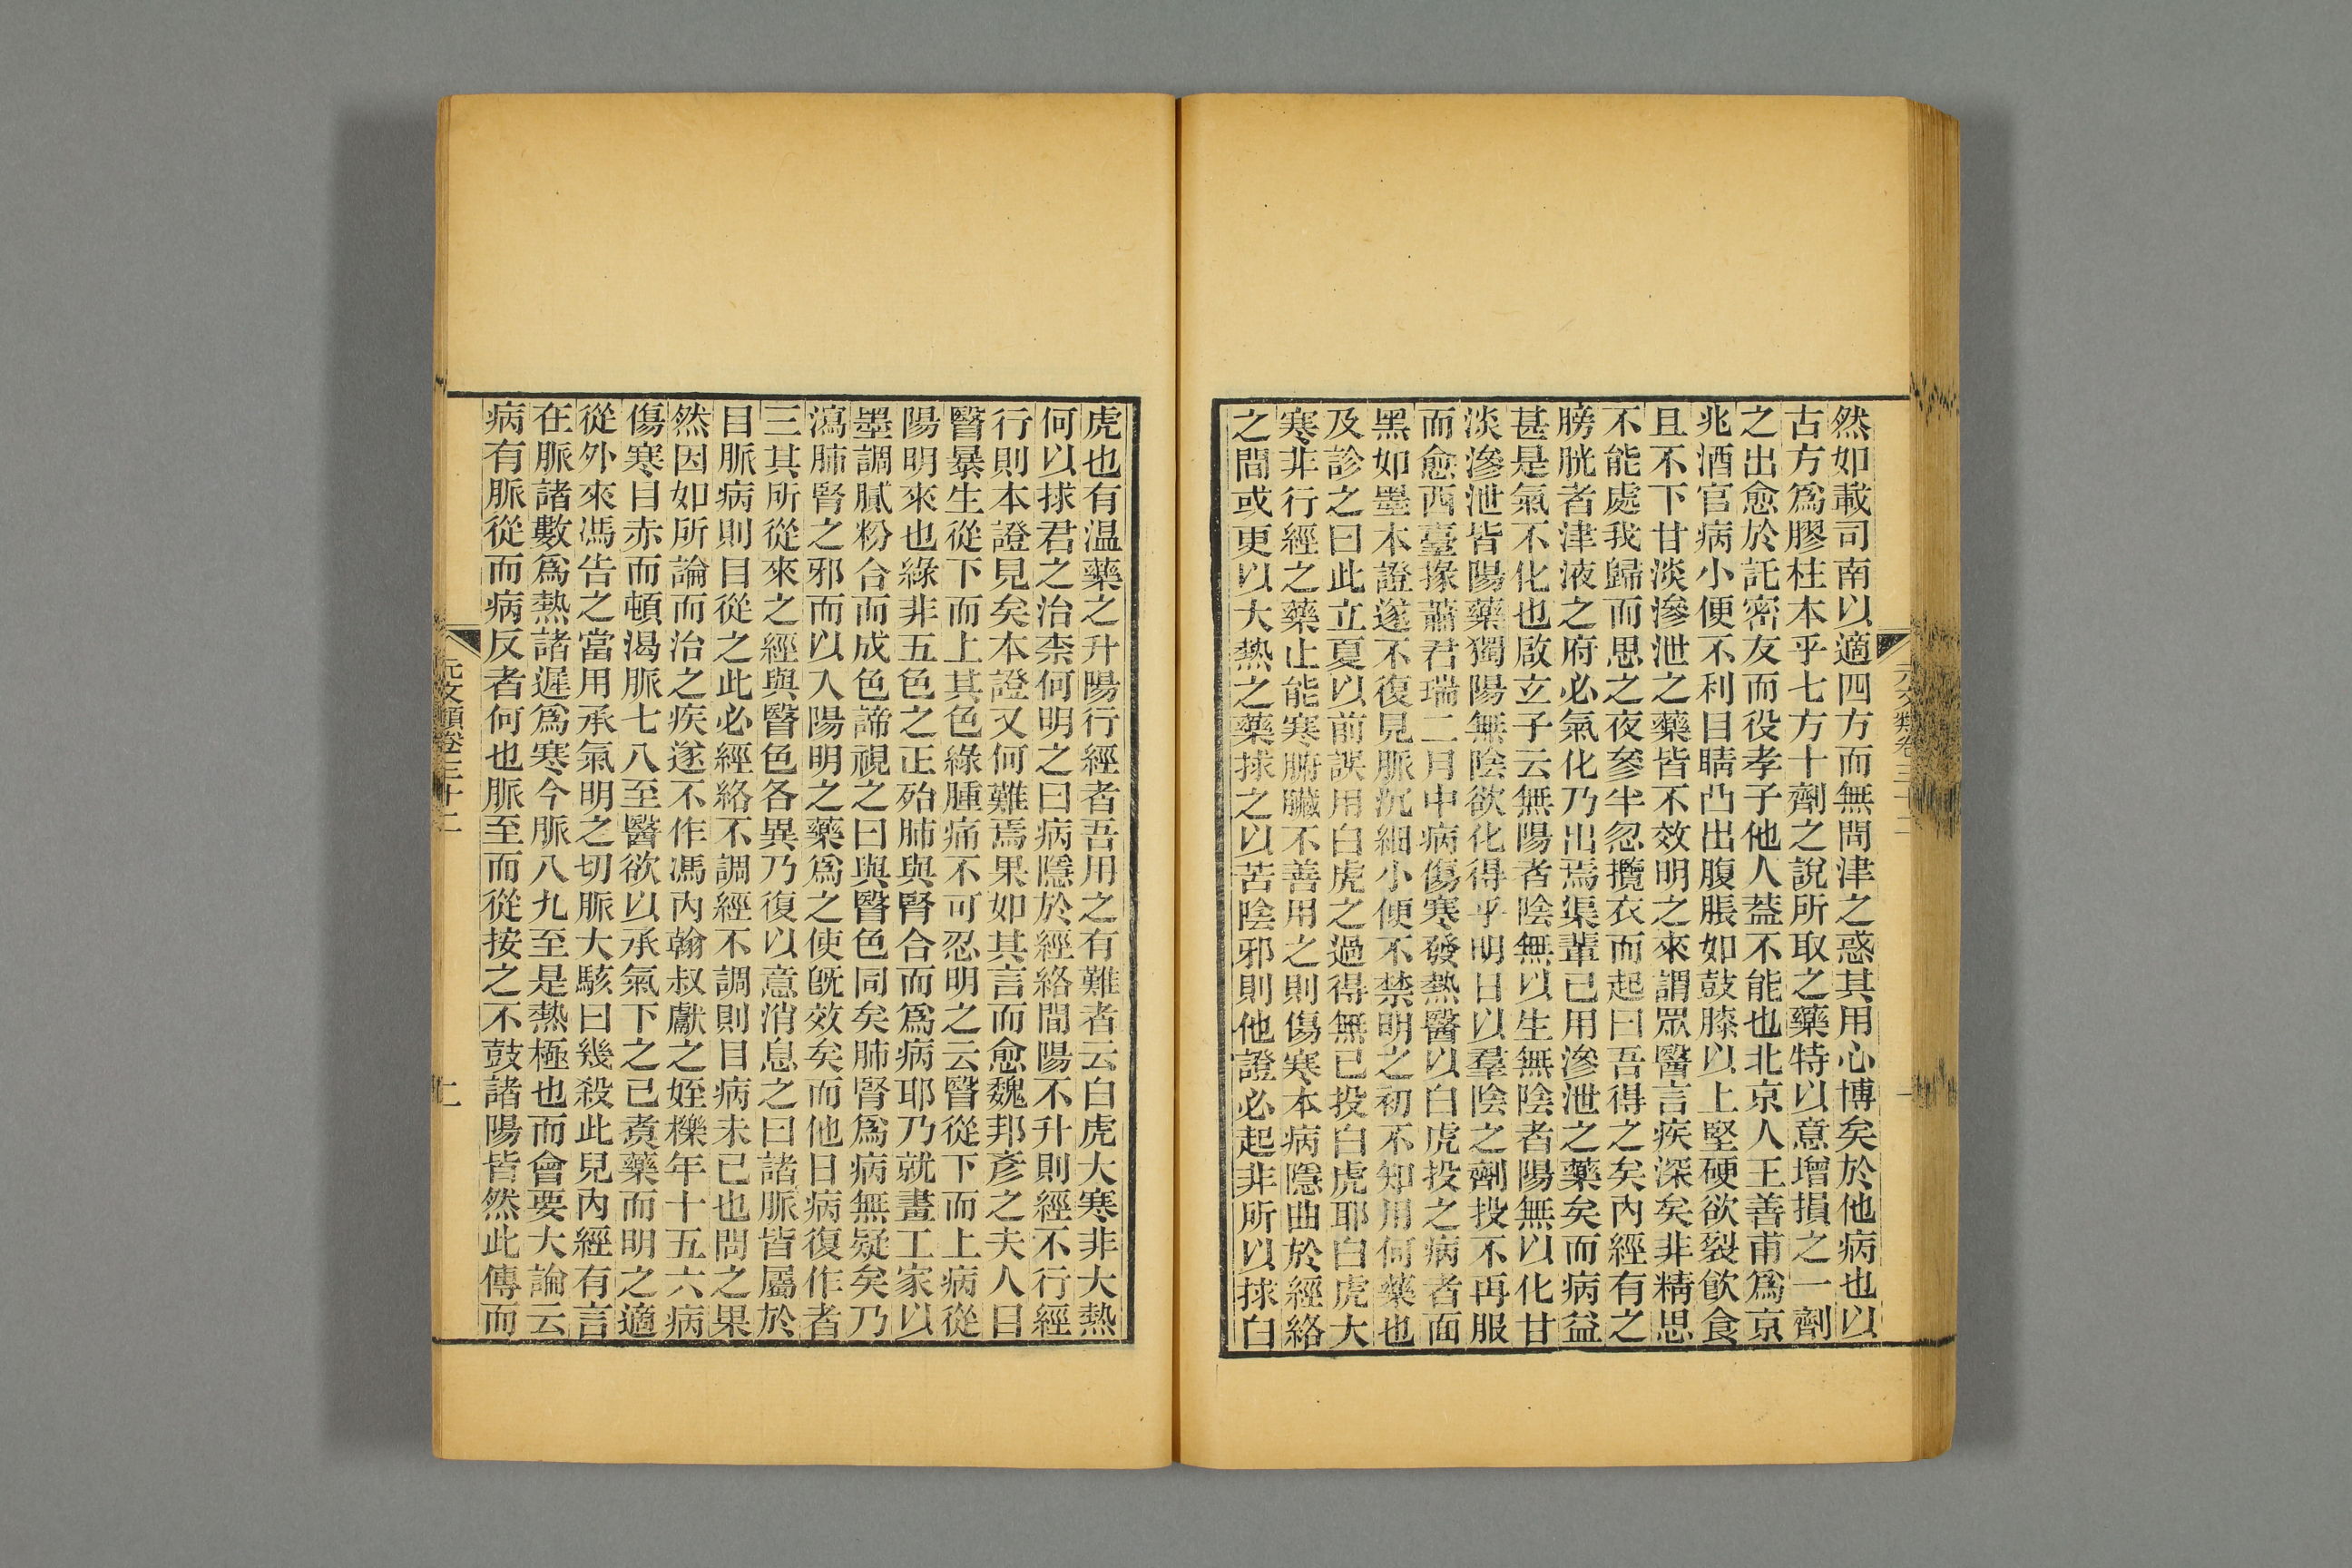 然如載司南以適四方而無問津之惑其用心博矣於他病也以
古方爲膠柱本乎七方十劑之說所取之藥特以意增損之一劑
之出愈於託密友而役孝子他人葢不能也北京人王善甫爲京
兆酒官病小便不利目睛凸出腹脹如鼓膝以上堅硬欲裂飮食
且不下甘淡滲泄之藥皆不效明之來謂眾醫言疾深矣非精思
不能處我歸而思之夜參半忽攬衣而起曰吾得之矣內經有之
膀胱者津液之府必氣化乃出焉渠輩已用滲泄之藥矣而病益
甚是氣不化也啟立子云無陽者陰無以生無陰者陽無以化甘
淡滲泄皆陽藥獨陽無陰欲化得乎明日以羣陰之劑投不再服
而愈西臺掾蕭君瑞二月中病傷寒發熱醫以白虎投之病者面
黑如墨本證遂不復見脈沉細小便不禁明之初不知用何藥也
及診之曰此立夏以前誤用白虎之過得無已投白虎耶白虎大
寒非行經之藥止能寒腑臟不善用之則傷寒本病隱曲於經絡
之間或更以大熱之藥捄之以苦陰邪則他證必起非所以捄白
虎也有温藥之升陽行經者吾用之有難者云白虎大寒非大熱
何以捄君之治柰何明之曰病隱於經絡間陽不升則經不行經
行則本證見矣本證又何難焉果如其言而愈魏邦彥之夫人目
醫暴生從下而上其色綠腫痛不可忍明之云醫從下而上病從
陽明來也綠非五色之正殆肺與腎合而爲病耶乃就畫工家以
墨調膩粉合而成色諦視之曰與醫色同矣肺腎爲病無疑矣乃
瀉肺腎之邪而以入陽明之藥爲之使旣效矣而他日病復作者
三其所從來之經與醫色各異乃復以意消息之曰諸脈皆屬於
目脈病則目從之此必經絡不調經不調則目病未已也問之果
然因如所論而治之疾遂不作馮內翰叔獻之姪櫟年十五六病
傷寒目赤而頓渴脈七八至醫欲以承氣下之已煑藥而明之適
從外來馮告之當用承氣明之切脈大駭曰幾殺此兒內經有言
在脈諸數爲熱諸遲爲寒今脈八九至是熱極也而會要大論云
病有脈從而病反者何也脈至而從按之不鼓諸陽皆然此傳而
元文類卷三十二